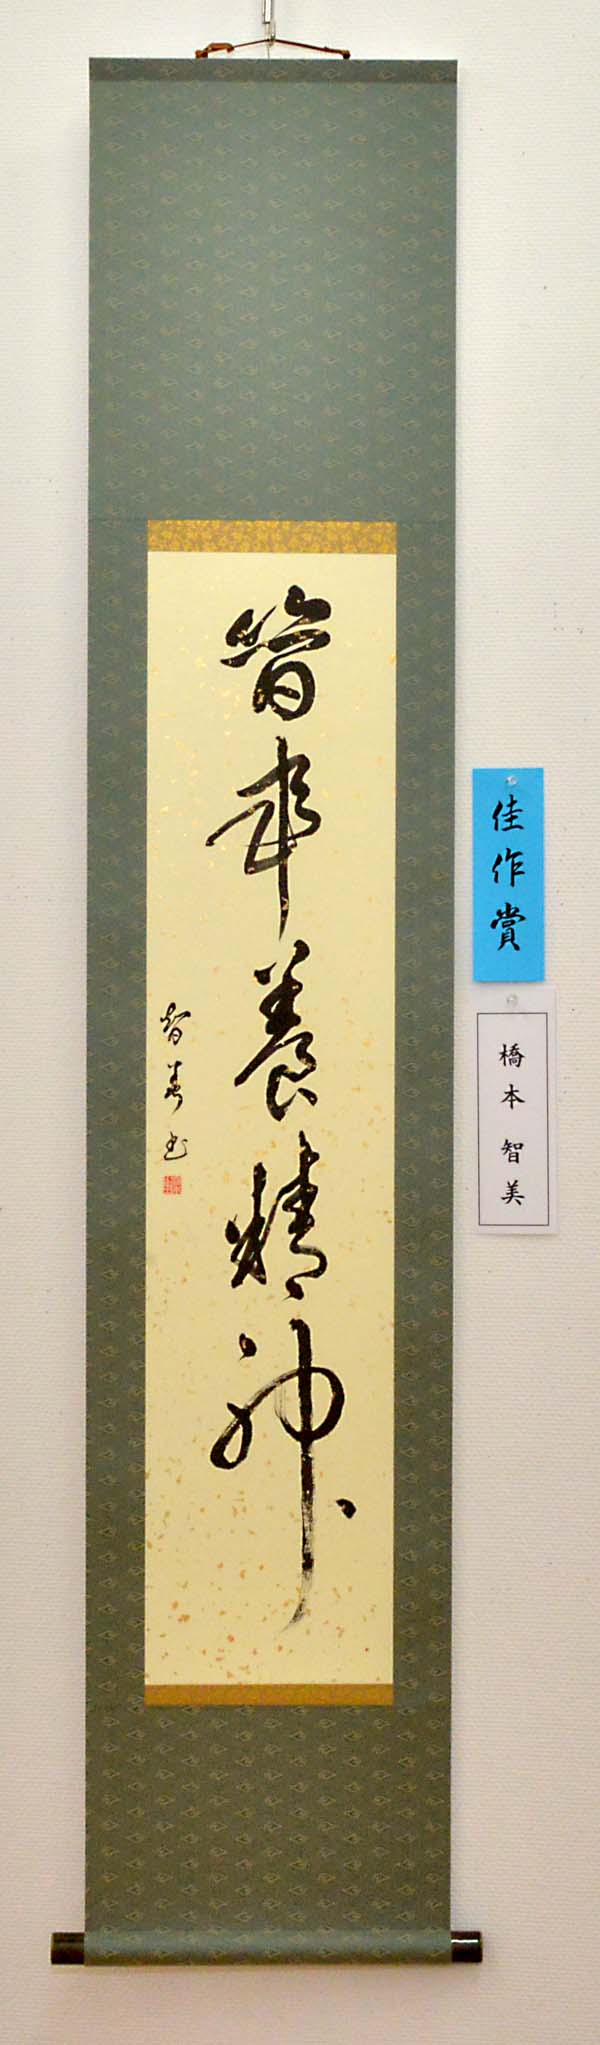 養精神
智書
佳作賞
橋本 智美